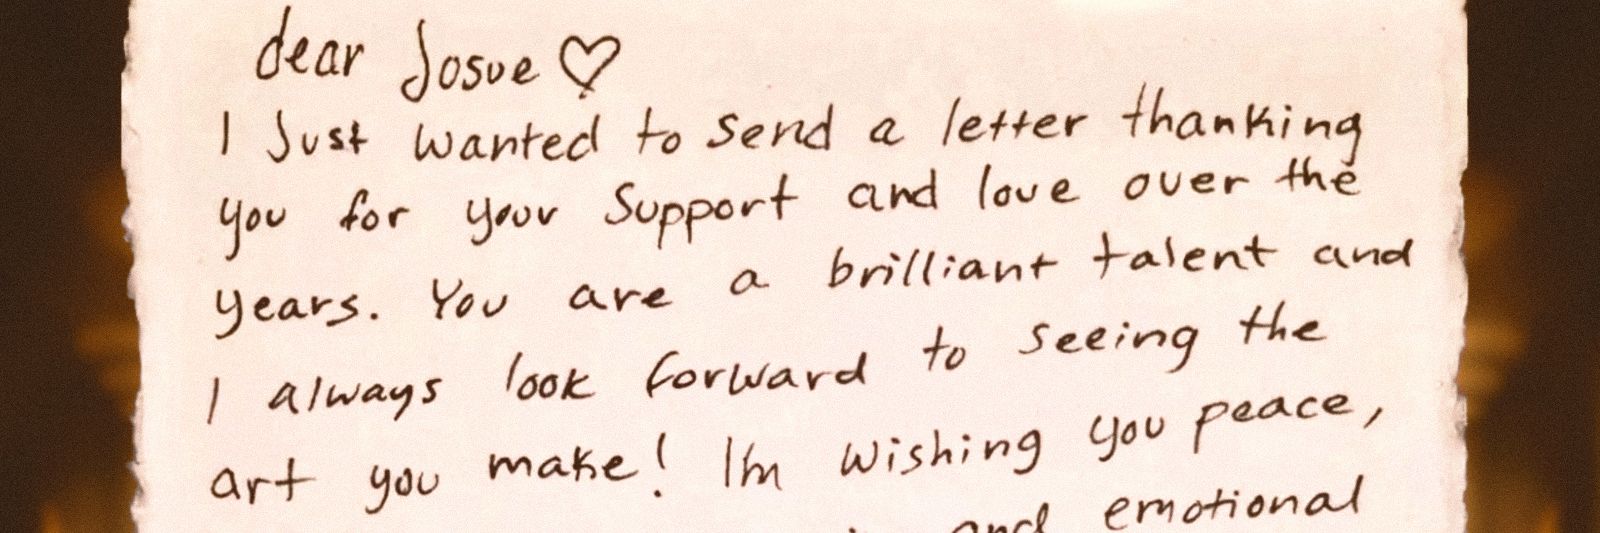 dear Josue ♡
I Just wanted to send a letter thanking
you for your Support and love over the
years. You are a brilliant talent and
I always look forward to seeing the
art you make! I'm wishing you peace,
and emotional